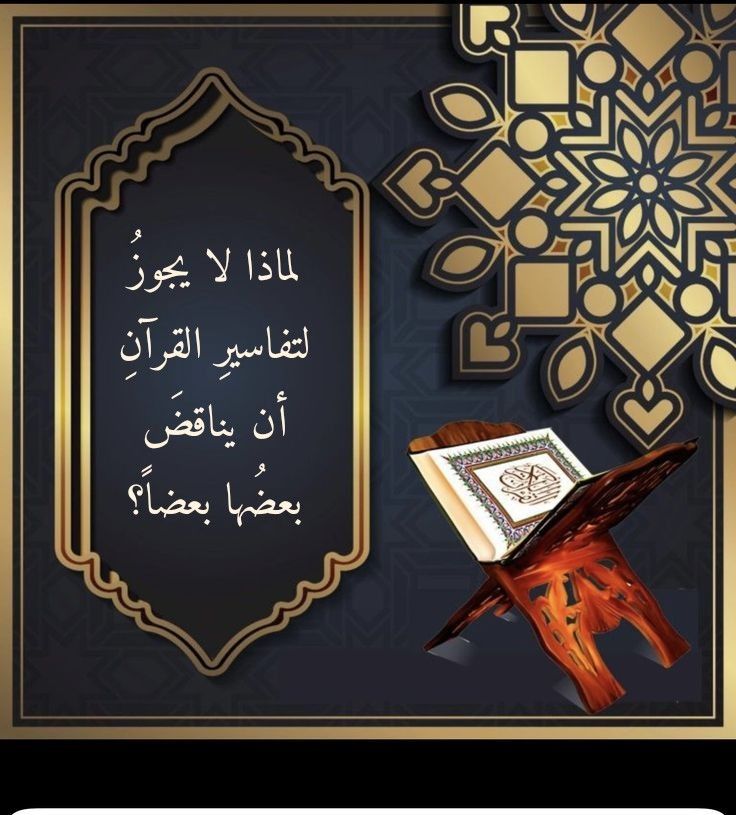 لماذا لا يجوزُ
لتفاسيرِ القرآنِ
أن يناقضَ
بعضُها بعضاً؟